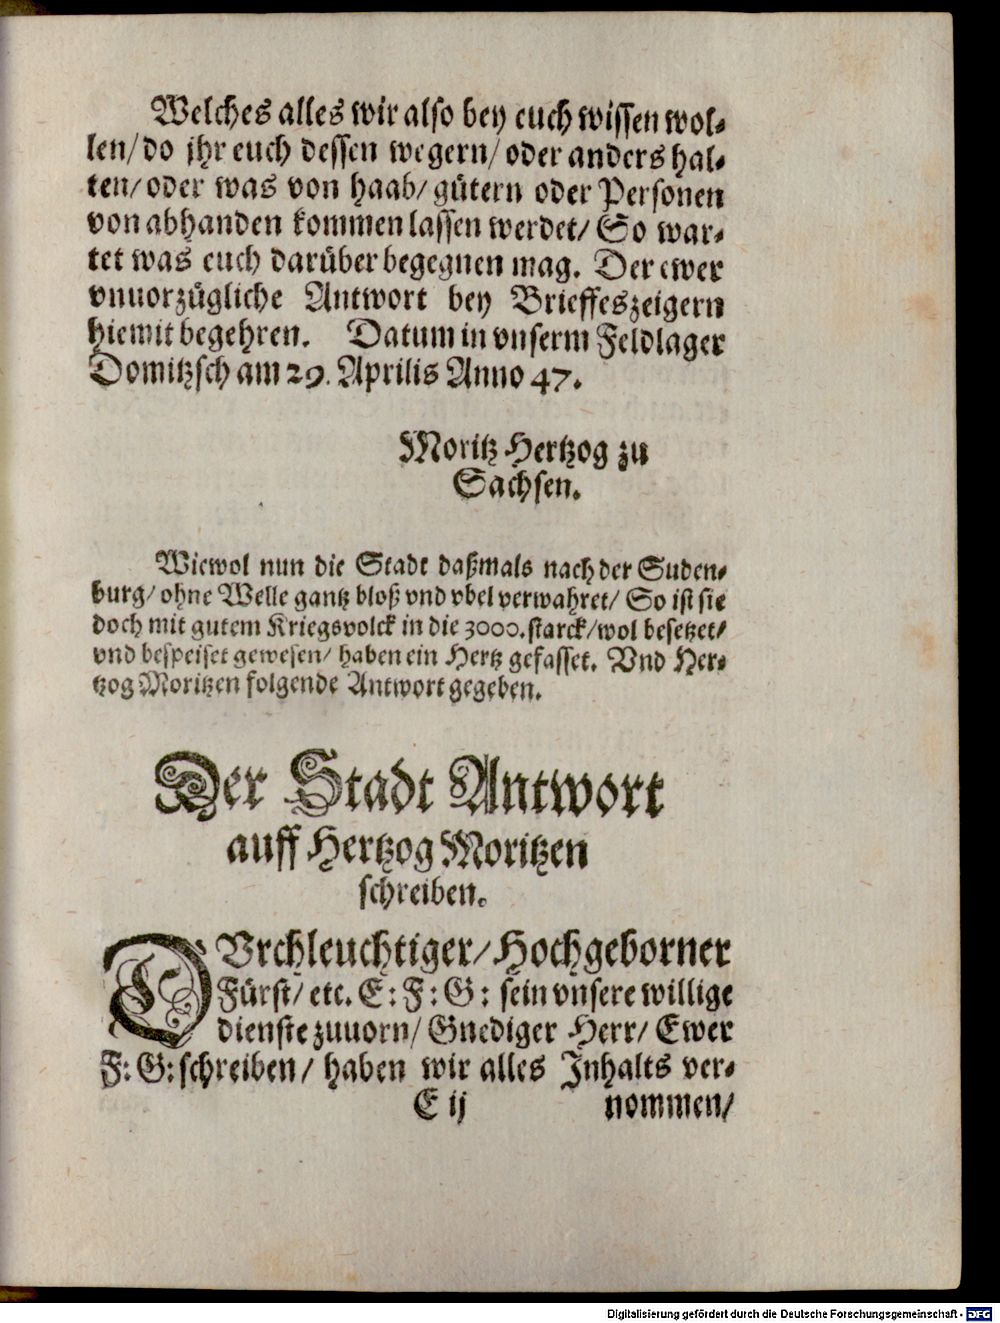 Welches alles wir also bey euch wissen wol-
len/ do jhr euch dessen wegern/ oder anders hal-
ten/ oder was von haab/ gütern oder Personen
von abhanden kommen lassen werdet/ So war-
tet was euch darüber begegnen mag. Der ewer
vnuorzügliche Antwort bey Brieffeszeigern
hiemit begehren. Datum in vnserm Feldlager
Domitzsch am 29. Aprilis Anno 47.
Moritz Hertzog zu
Sachsen.
Wiewol nun die Stadt daßmals nach der Suden-
burg/ ohne Welle gantz bloß vnd vbel verwahret/ So ist sie
doch mit gutem Kriegsvolck in die 3000. starck/ wol besetzet/
vnd bespeiset gewesen/ haben ein Hertz gefasset. Vnd Her-
tzog Moritzen folgende Antwort gegeben.
Der Stadt Antwort
auff Hertzog Moritzen
schreiben.
DVrchleuchtiger/ Hochgeborner
Fürst/ etc. E: F: G: sein vnsere willige
dienste zuuorn/ Gnediger Herr/ Ewer
F: G: schreiben/ haben wir alles Inhalts ver-
E ij nommen/
Digitalisierung gefördert durch die Deutsche Forschungsgemeinschaft - DFG